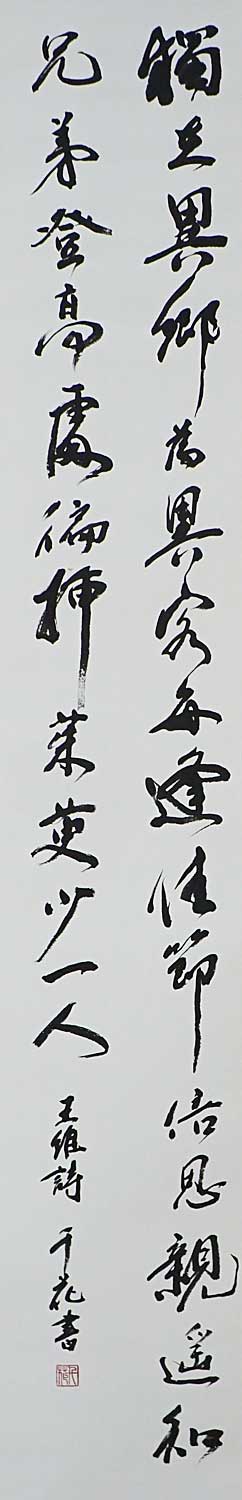 獨在異鄉為異客每逢佳節倍思親遥知
兄弟登高處徧插茱萸少一人
王維詩 千花書